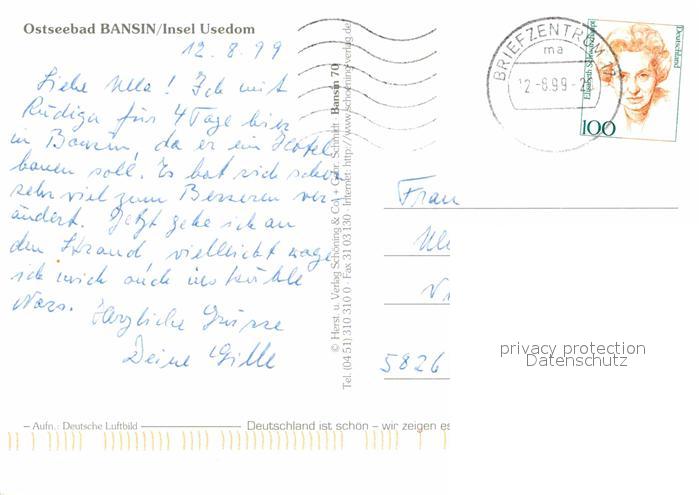 Ostseebad BANSIN/Insel Usedom
12.8.99
Liebe Ulla! Ich mit
Rüdiger für 4 Tage hier
in Bansin, da er ein Hotel
bauen soll. Es hat sich schon
sehr viel zum Besseren ver
ändert. Jetzt gehe ich an
den Strand, vielleicht wage
ich mich auch ins kühle
Nass. Herzliche Grüsse
Deine Gille
– Aufn.: Deutsche Luftbild
Deutschland ist schön – wir zeigen es
© Herst. u. Verlag Schöning & Co. + Gebr. Schmidt Bansin 70
Tel. (04 51) 310 310 0 · Fax 31 03 130 · Internet: http://www.schoening-verlag.de
BRIEFZENTRUM 17
ma
12.-8.99-2
Elisabeth Schwarzhaupt
Deutschland
100
Frau
5826
privacy protection
Datenschutz